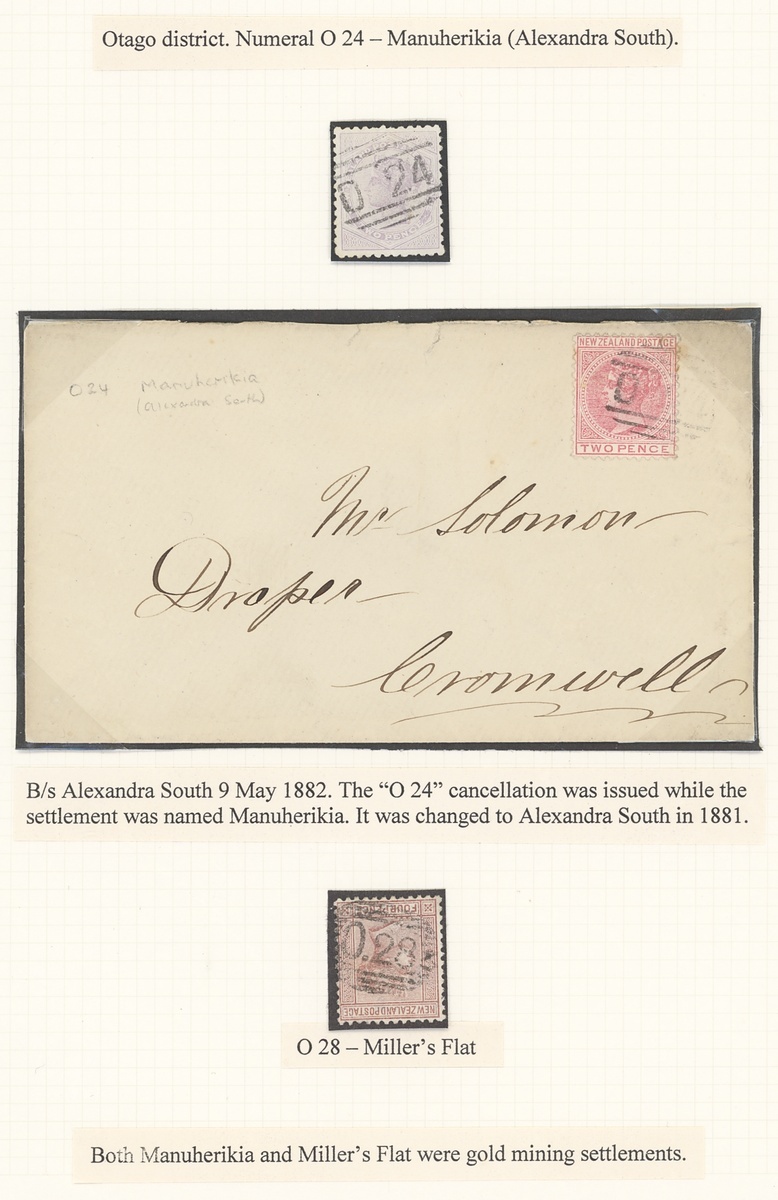 Otago district. Numeral O 24 – Manuherikia (Alexandra South).
O 24
TWO PENCE
NEW ZEALAND POSTAGE
O
TWO PENCE
O24 Manuherikia
(Alexandra South)
Mr Solomon
Draper
Cromwell
B/s Alexandra South 9 May 1882. The “O 24” cancellation was issued while the
settlement was named Manuherikia. It was changed to Alexandra South in 1881.
FOURPENCE
O.28
NEW ZEALAND POSTAGE
O 28 – Miller’s Flat
Both Manuherikia and Miller’s Flat were gold mining settlements.